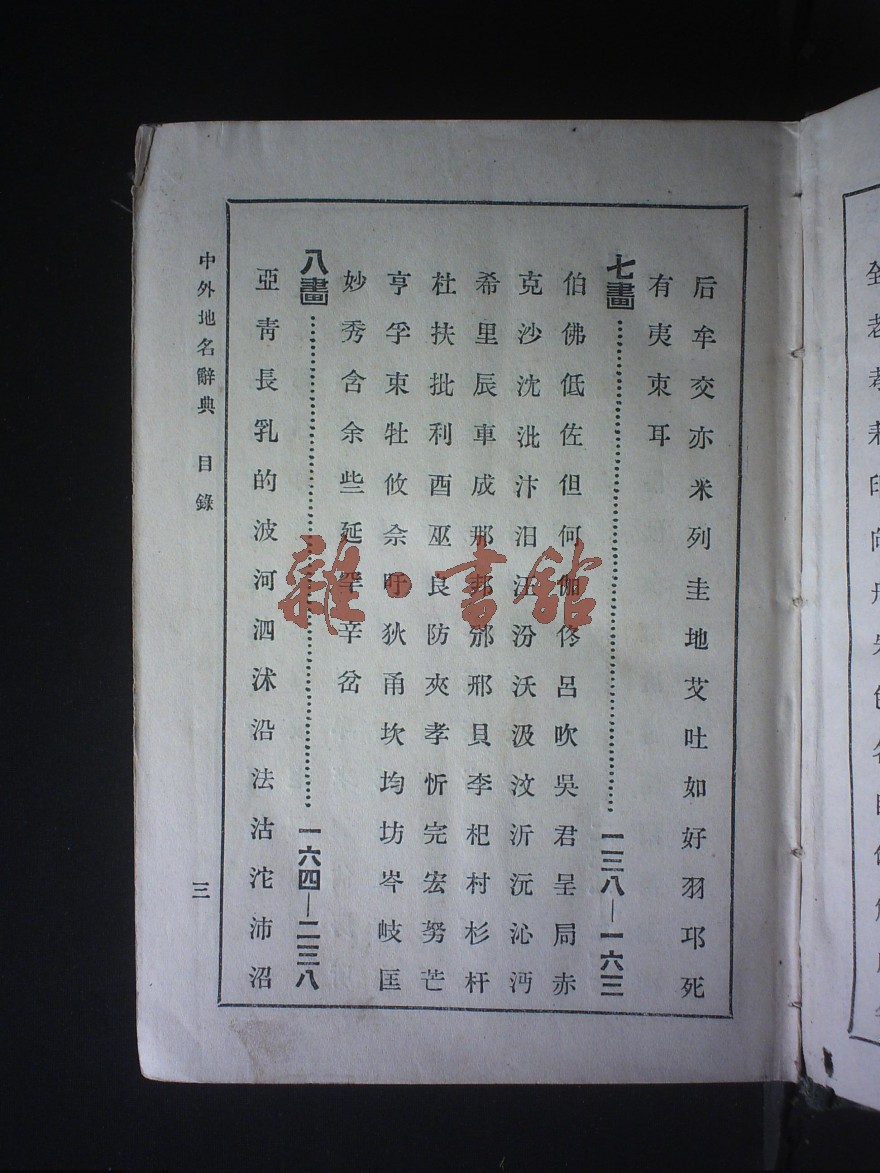 后牟交亦米列圭地艾吐如好羽邛死
有夷朿耳
七畫 一三八—一六三
伯佛低佐但何伽佟呂吹吳君呈局赤
克沙沈沘汴汨汪汾沃汲汶沂沅沁沔
希里辰車成那邦邠邢貝李杞村杉杆
杜扶批利酉巫良防夾孝忻完宏努芒
亨孚束牡攸佘盱狄甬坎均坊岑岐匡
妙秀含余些延罕辛岔
八畫 一六四—二三八
亞靑長乳的波河泗沭沿法沽沱沛沼
中外地名辭典 目錄
三
雜·書館